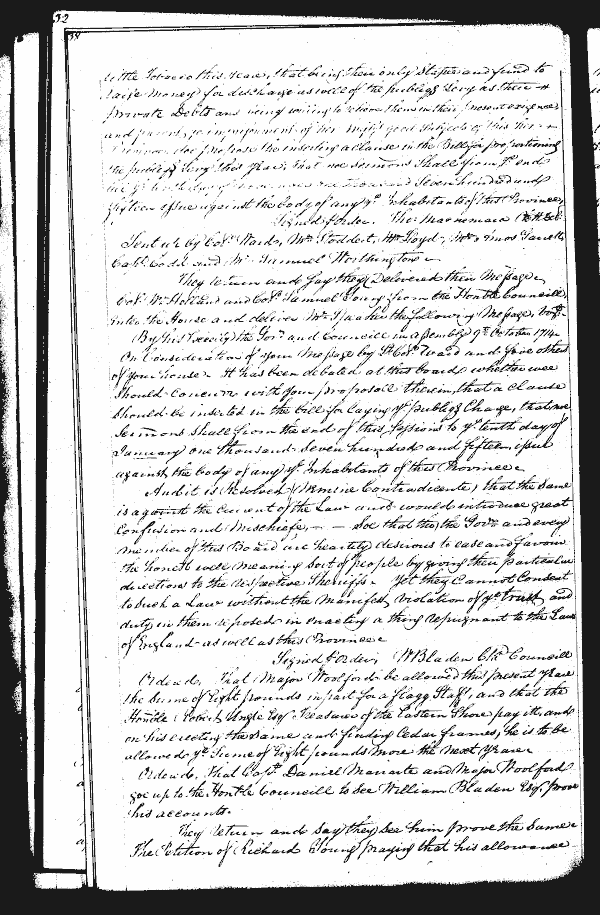 32
to the Tobacco this Year, that being their only Staple and fund to
raise Money for discharge as well of the publiq Levy as their
private Debts and being willing to relieve them in their present exigence
and prevent ye impoverishment of her Majty good Subjects of this her
Province, doe propose the inserting a clause in the Bill for proportioning
the publiq Levy this Year, that noe Sumons Shall from ye end
one thousand Seven hundred and
fifteen issue against the body of any ye Inhabitants of this Province
Signed p order. Tho: Macnemara Cl H D
Sent up by Col. Ward, Mr. Stoddert, Mr. Lloyd, Mr. 
Capt. Codd and Mr. Samuel Worthington
They return and Say they Delivered their Message
Col. Wm. Holland and Col. Samuel Young from the Honble Councill
enter the House and deliver Mr. Speaker the following Message, Vizt.
By his Excellcy the Govr. and Councill in assembly 9th October 1714
On Consideration of your Message by Lt. Col. Ward and five others
of your house. It has been debated at this board whether wee
Should Concurr with your proposall therein, that a clause
should be inserted in the bill for laying ye publiq Charge, that noe
Sumons Shall from the end of this Sessions to ye tenth day of
January one thousand Seven hundred and fifteen, issue
against the body of any ye Inhabitants of this Province
And it is Resolved (Nemine Contradicente) that the Same
is against the Current of the Law and would introduce great
Confusion and Mischiefe, — — Soe that tho' the Govr. and every
member of this Board are heartily desirous to ease and favour
the honest well meaning Sort of people by giving their particular
directions to the respective Sheriffs. Yet they Cannot Consent
to Such a Law without the Manifest Violation of ye trust and
duty in them reposed in enacting a thing repugnant to the Law
of England as well as this Province
Signed p Order, W Bladen Clk Councill
Ordered, That Major Woolford be allowed this present Year
the Sume of Eight pounds in part for a flagg Staff, and that the
Honble Robert Ungle Esqr. Treasurer of the Eastern Shore pay itt, and
on his erecting the Same and finding Cedar frames, he is to be
allowed ye Sume of Eight pounds more the next Year
Ordered, That Capt. Daniel Mariarte and Major Woolford
goe up to the Honble Councill to See William Bladen Esqr. prove
his accounts.
They return and Say they See him prove the Same
The Petition of Richard Young praying that his allowance